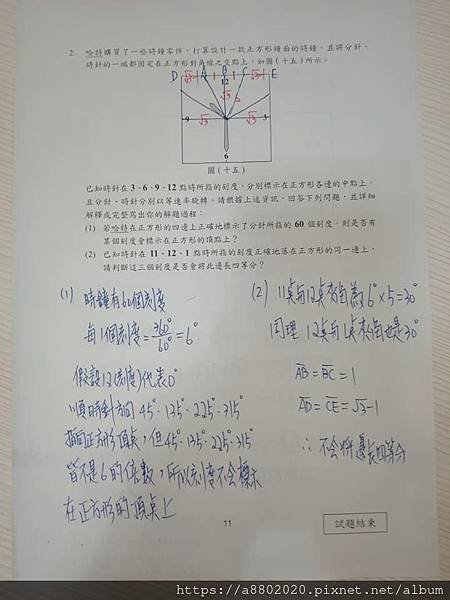 2. 哈特購買了一些時鐘零件，打算設計一款正方形鐘面的時鐘，且將分針、
時針的一端都固定在正方形對角線之交點上，如圖(十五)所示。
D √3-1 A 1 B 1 C √3-1 E
12
√3 2
9 √3 √3 3
6
圖(十五)
已知時針在 3、6、9、12 點時所指的刻度，分別標示在正方形各邊的中點上，
且分針、時針分別以等速率旋轉。請根據上述資訊，回答下列問題，並詳細
解釋或完整寫出你的解題過程：
(1) 若哈特在正方形的四邊上正確地標示了分針所指的 60 個刻度，則是否有
某個刻度會標示在正方形的頂點上？
(2) 已知時針在 11、12、1 點時所指的刻度正確地落在正方形的同一邊上，
請判斷這三個刻度是否會將此邊長四等分？
(1) 時鐘有60個刻度
每1個刻度=360°/60=6°
假設12(刻度)代表0°
順時針方向 45°、135°、225°、315°
指向正方形頂點，但45°、135°、225°、315°
皆不是6的倍數，所以刻度不會標示
在正方形的頂點上
(2) 11點與12點夾角為6°×5=30°
同理 12點與1點夾角也是30°
AB=BC=1
AD=CE=√3-1
∴不會將邊長四等分
11
試題結束
https://a8802020.pixnet.net/album